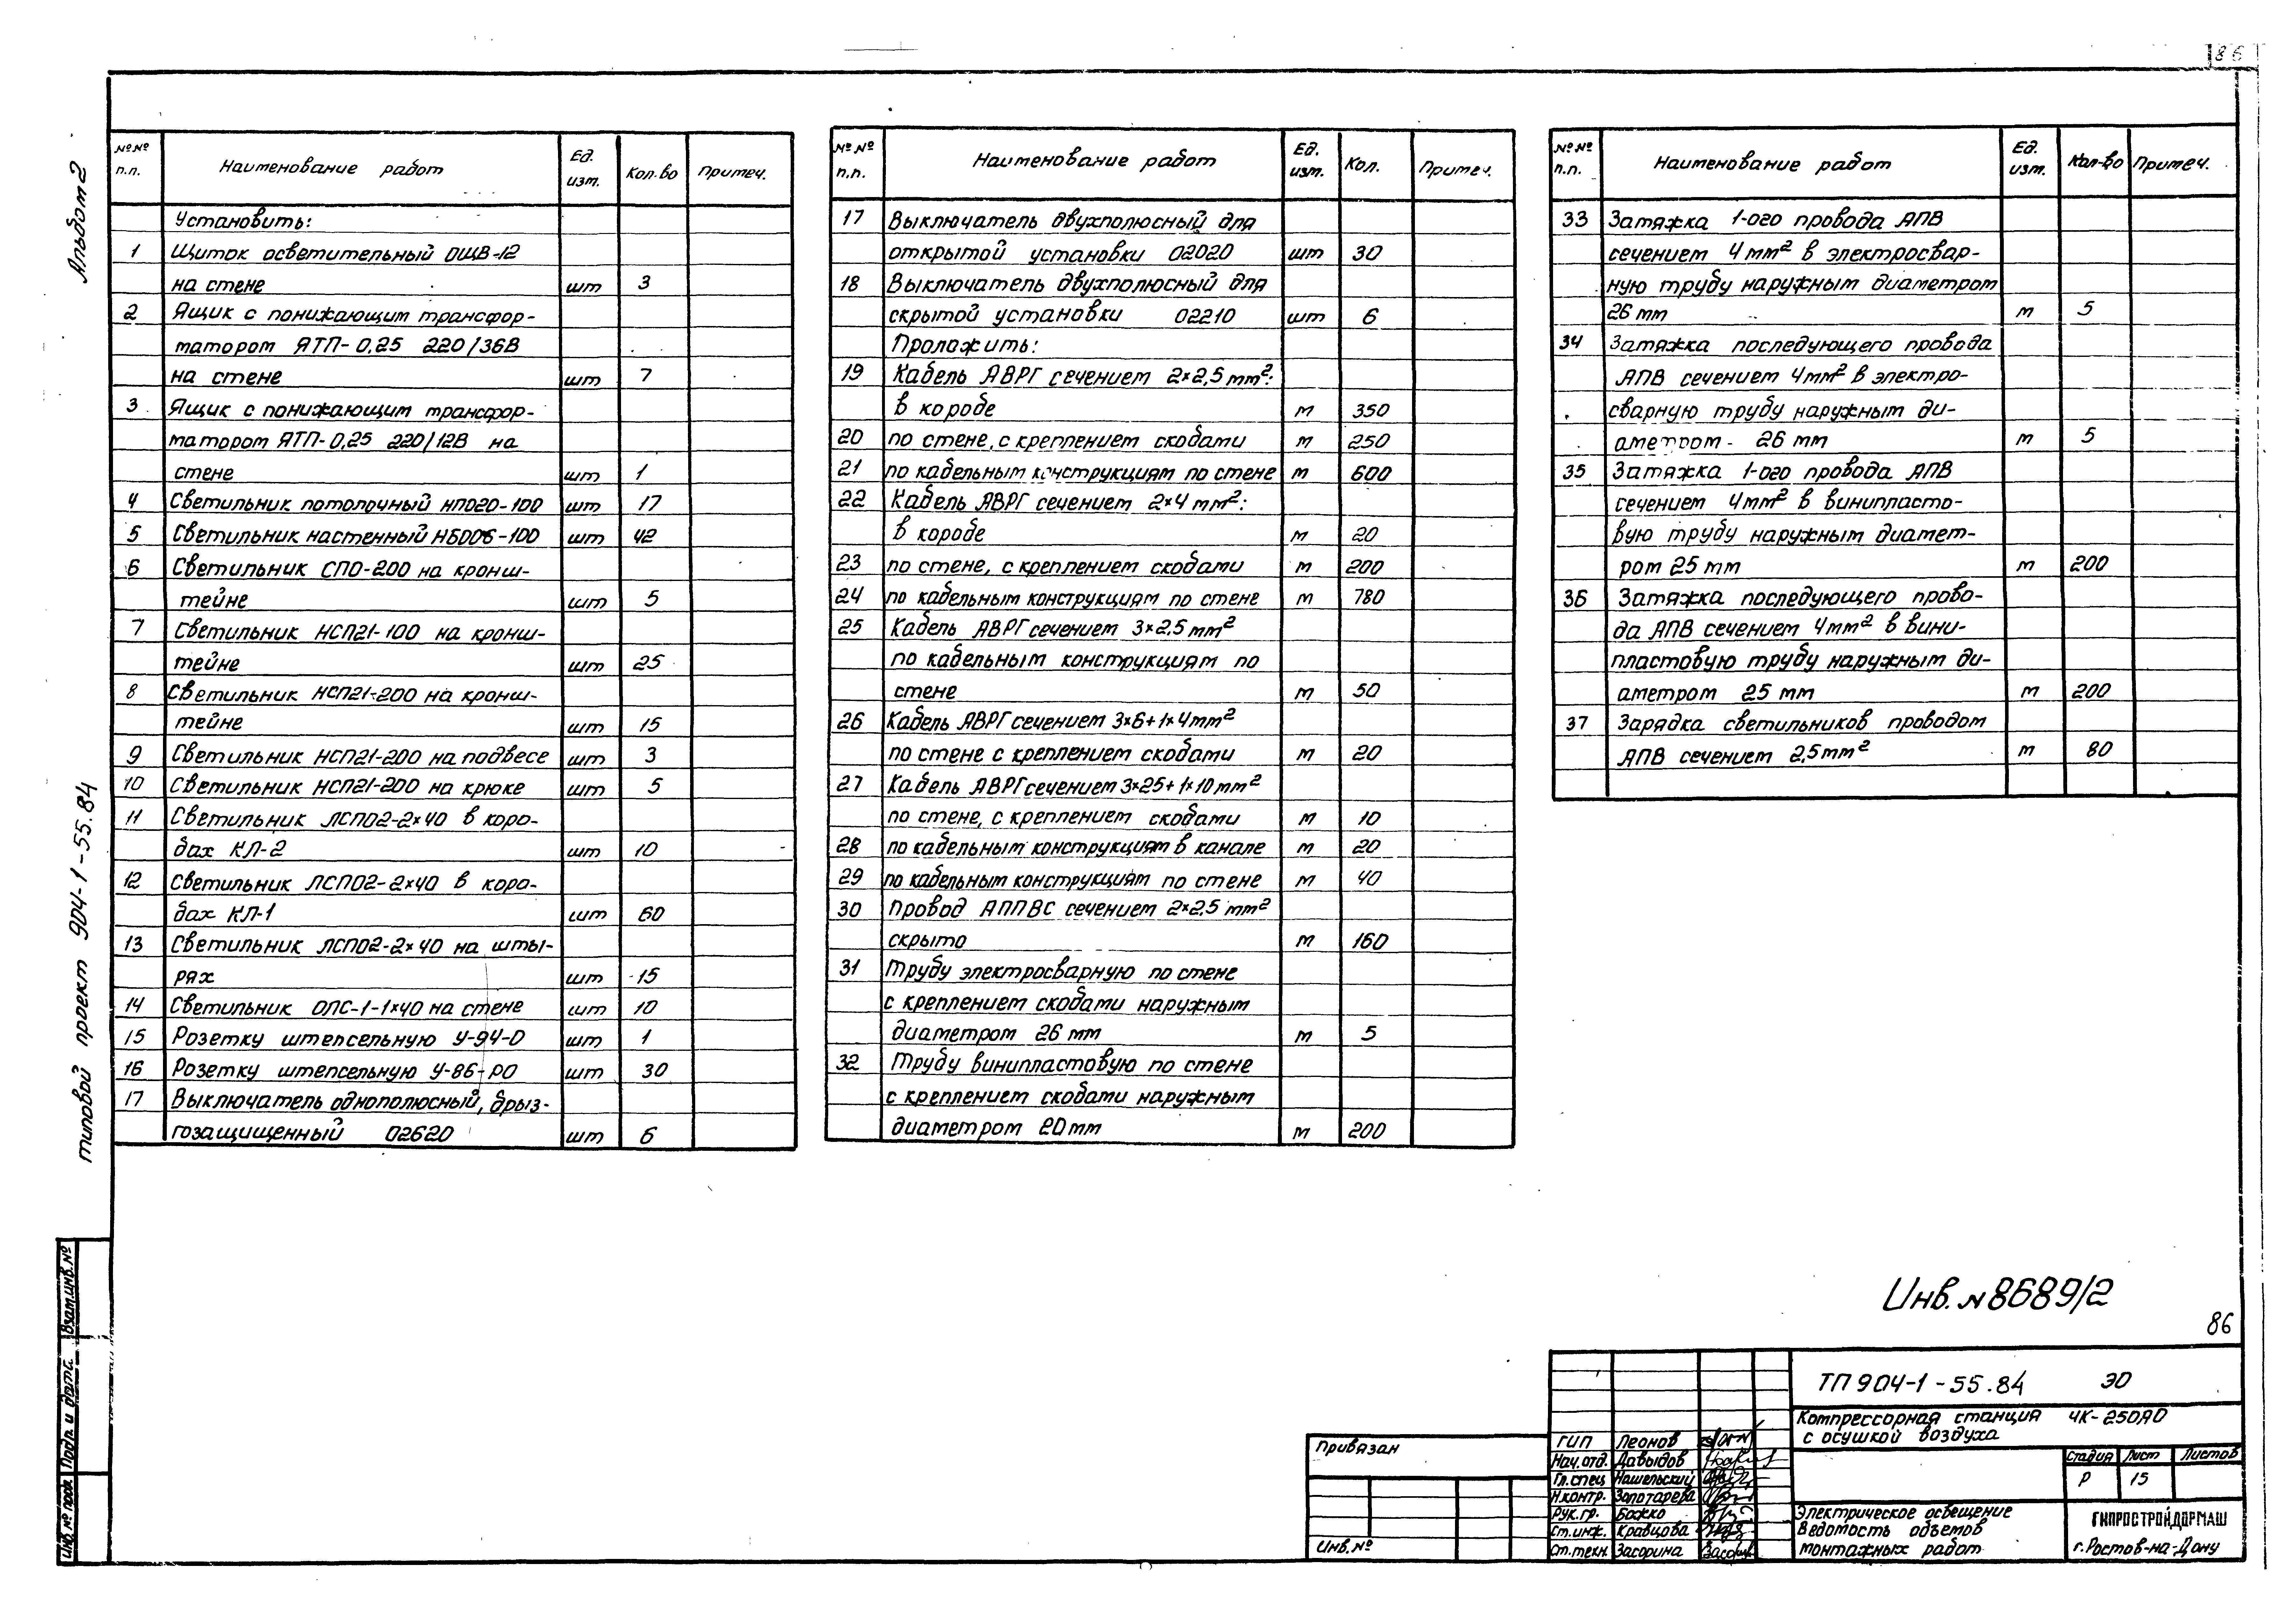 86
Альбом 2
типовой проект 904-1-55.84
№№ п.п. Наименование работ Ед. изм. Кол.во Примеч.
Установить:
1 Щиток осветительный ОЩВ-12
на стене шт 3
2 Ящик с понижающим трансфор-
матором ЯТП-0,25 220/36В
на стене шт 7
3 Ящик с понижающим трансфор-
матором ЯТП-0,25 220/12В на
стене шт 1
4 Светильник потолочный НПО20-100 шт 17
5 Светильник настенный НБО06-100 шт 42
6 Светильник СПО-200 на кронш-
тейне шт 5
7 Светильник НСП21-100 на кронш-
тейне шт 25
8 Светильник НСП21-200 на кронш-
тейне шт 15
9 Светильник НСП21-200 на подвесе шт 3
10 Светильник НСП21-200 на крюке шт 5
11 Светильник ЛСП02-2×40 в коро-
бах КЛ-2 шт 10
12 Светильник ЛСП02-2×40 в коро-
бах КЛ-1 шт 60
13 Светильник ЛСП02-2×40 на шты-
рях шт 15
14 Светильник ОЛС-1-1×40 на стене шт 10
15 Розетку штепсельную У-94-0 шт 1
16 Розетку штепсельную У-86-РО шт 30
17 Выключатель однополюсный, брыз-
гозащищенный 02620 шт 6
№№ п.п. Наименование работ Ед. изм. Кол. Примеч.
17 Выключатель двухполюсный для
открытой установки 02020 шт 30
18 Выключатель двухполюсный для
скрытой установки 02210 шт 6
Проложить:
19 Кабель АВРГ сечением 2×2,5 мм²:
в коробе м 350
20 по стене, с креплением скобами м 250
21 по кабельным конструкциям по стене м 600
22 Кабель АВРГ сечением 2×4 мм²:
в коробе м 20
23 по стене, с креплением скобами м 200
24 по кабельным конструкциям по стене м 780
25 Кабель АВРГ сечением 3×2,5 мм²
по кабельным конструкциям по
стене м 50
26 Кабель АВРГ сечением 3×6+1×4 мм²
по стене с креплением скобами м 20
27 Кабель АВРГ сечением 3×25+1×10 мм²
по стене, с креплением скобами м 10
28 по кабельным конструкциям в канале м 20
29 по кабельным конструкциям по стене м 40
30 Провод АППВС сечением 2×2,5 мм²
скрыто м 160
31 Трубу электросварную по стене
с креплением скобами наружным
диаметром 26 мм м 5
32 Трубу винипластовую по стене
с креплением скобами наружным
диаметром 20 мм м 200
№№ п.п. Наименование работ Ед. изм. Кол-во Примеч.
33 Затяжка 1-ого провода АПВ
сечением 4 мм² в электросвар-
ную трубу наружным диаметром
26 мм м 5
34 Затяжка последующего провода
АПВ сечением 4 мм² в электро-
сварную трубу наружным ди-
аметром - 26 мм м 5
35 Затяжка 1-ого провода АПВ
сечением 4 мм² в винипласто-
вую трубу наружным диамет-
ром 25 мм м 200
36 Затяжка последующего прово-
да АПВ сечением 4 мм² в вини-
пластовую трубу наружным ди-
аметром 25 мм м 200
37 Зарядка светильников проводом
АПВ сечением 2,5 мм² м 80
Инв. № 8689/2
86
Взам.инв.№
Подп и дата
Инв. № подл.
Привязан
Инв. №
ГИП Леонов
Нач.отд. Давыдов
Гл.спец Нашельский
Н.контр. Золотарева
Рук.гр. Божко
Ст.инж. Кравцова
Ст.техн. Засорина
ТП 904-1-55.84 ЭО
Компрессорная станция 4К-250АО
с осушкой воздуха
Стадия Лист Листов
Р 15
Электрическое освещение
Ведомость объемов
монтажных работ
ГИПРОСТРОЙДОРМАШ
г.Ростов-на-Дону